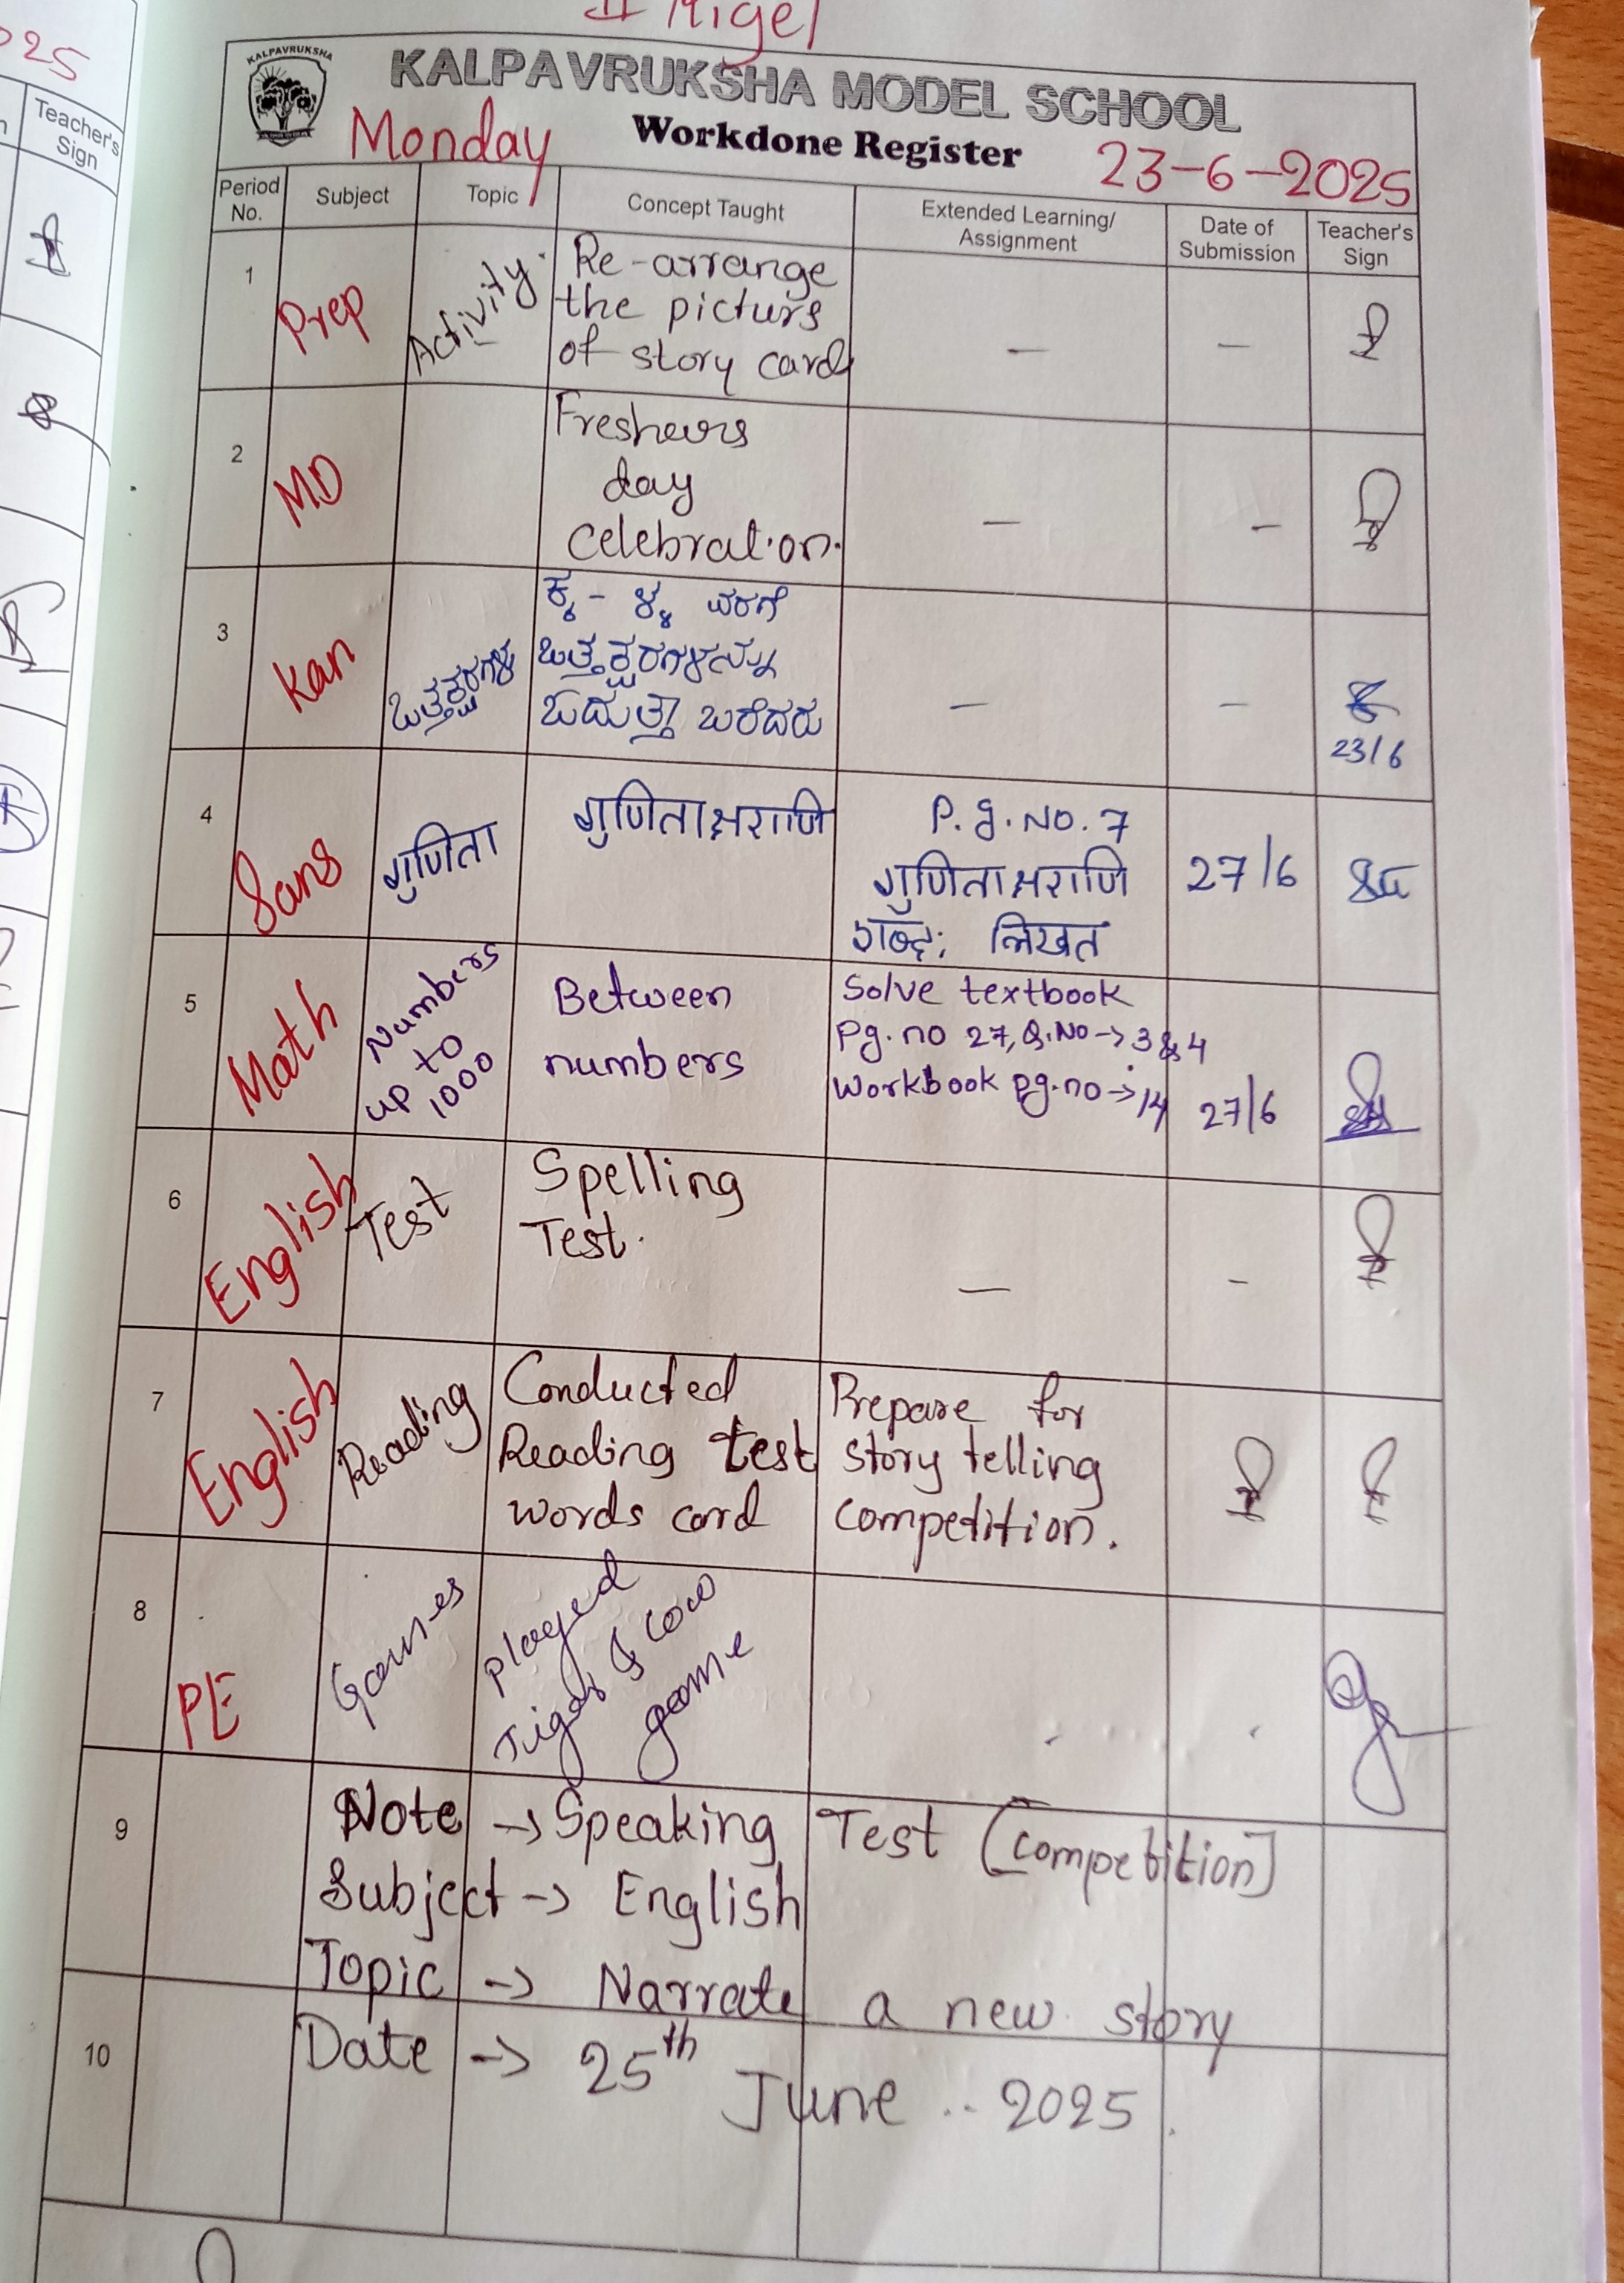 II Rigel
KALPAVRUKSHA
KALPAVRUKSHA MODEL SCHOOL
Monday
Workdone Register
23-6-2025
025
Teacher's
Sign
Period
No.
Subject
Topic
Concept Taught
Extended Learning/
Assignment
Date of
Submission
Teacher's
Sign
1
Prep
Activity.
Re-arrange
the picturs
of story card
-
-
2
MD
Freshers
day
celebration.
-
-
3
Kan
ಒತ್ತಕ್ಷರಗಳ
ಕ್ಕ - ಳ್ಳ ವರೆಗೆ
ಒತ್ತಕ್ಷರಗಳನ್ನು
ಓದುತ್ತಾ ಬರೆದರು
-
-
23/6
4
Sans
गुणिता
गुणिताक्षराणि
P.g.No.7
गुणिताक्षराणि
शब्द: लिखत
27/6
5
Math
Numbers
up to
1000
Between
numbers
Solve textbook
Pg.no 27, Q.No→3 & 4
Workbook pg.no→14
27/6
6
English
Test
Spelling
Test.
-
-
7
English
Reading
Conducted
Reading test
words card
Prepare for
story telling
competition.
8
PE
Games
played
Tiger & Cow
game
9
Note → Speaking Test [competition]
Subject → English
Topic → Narrate a new story
10
Date → 25th June .. 2025